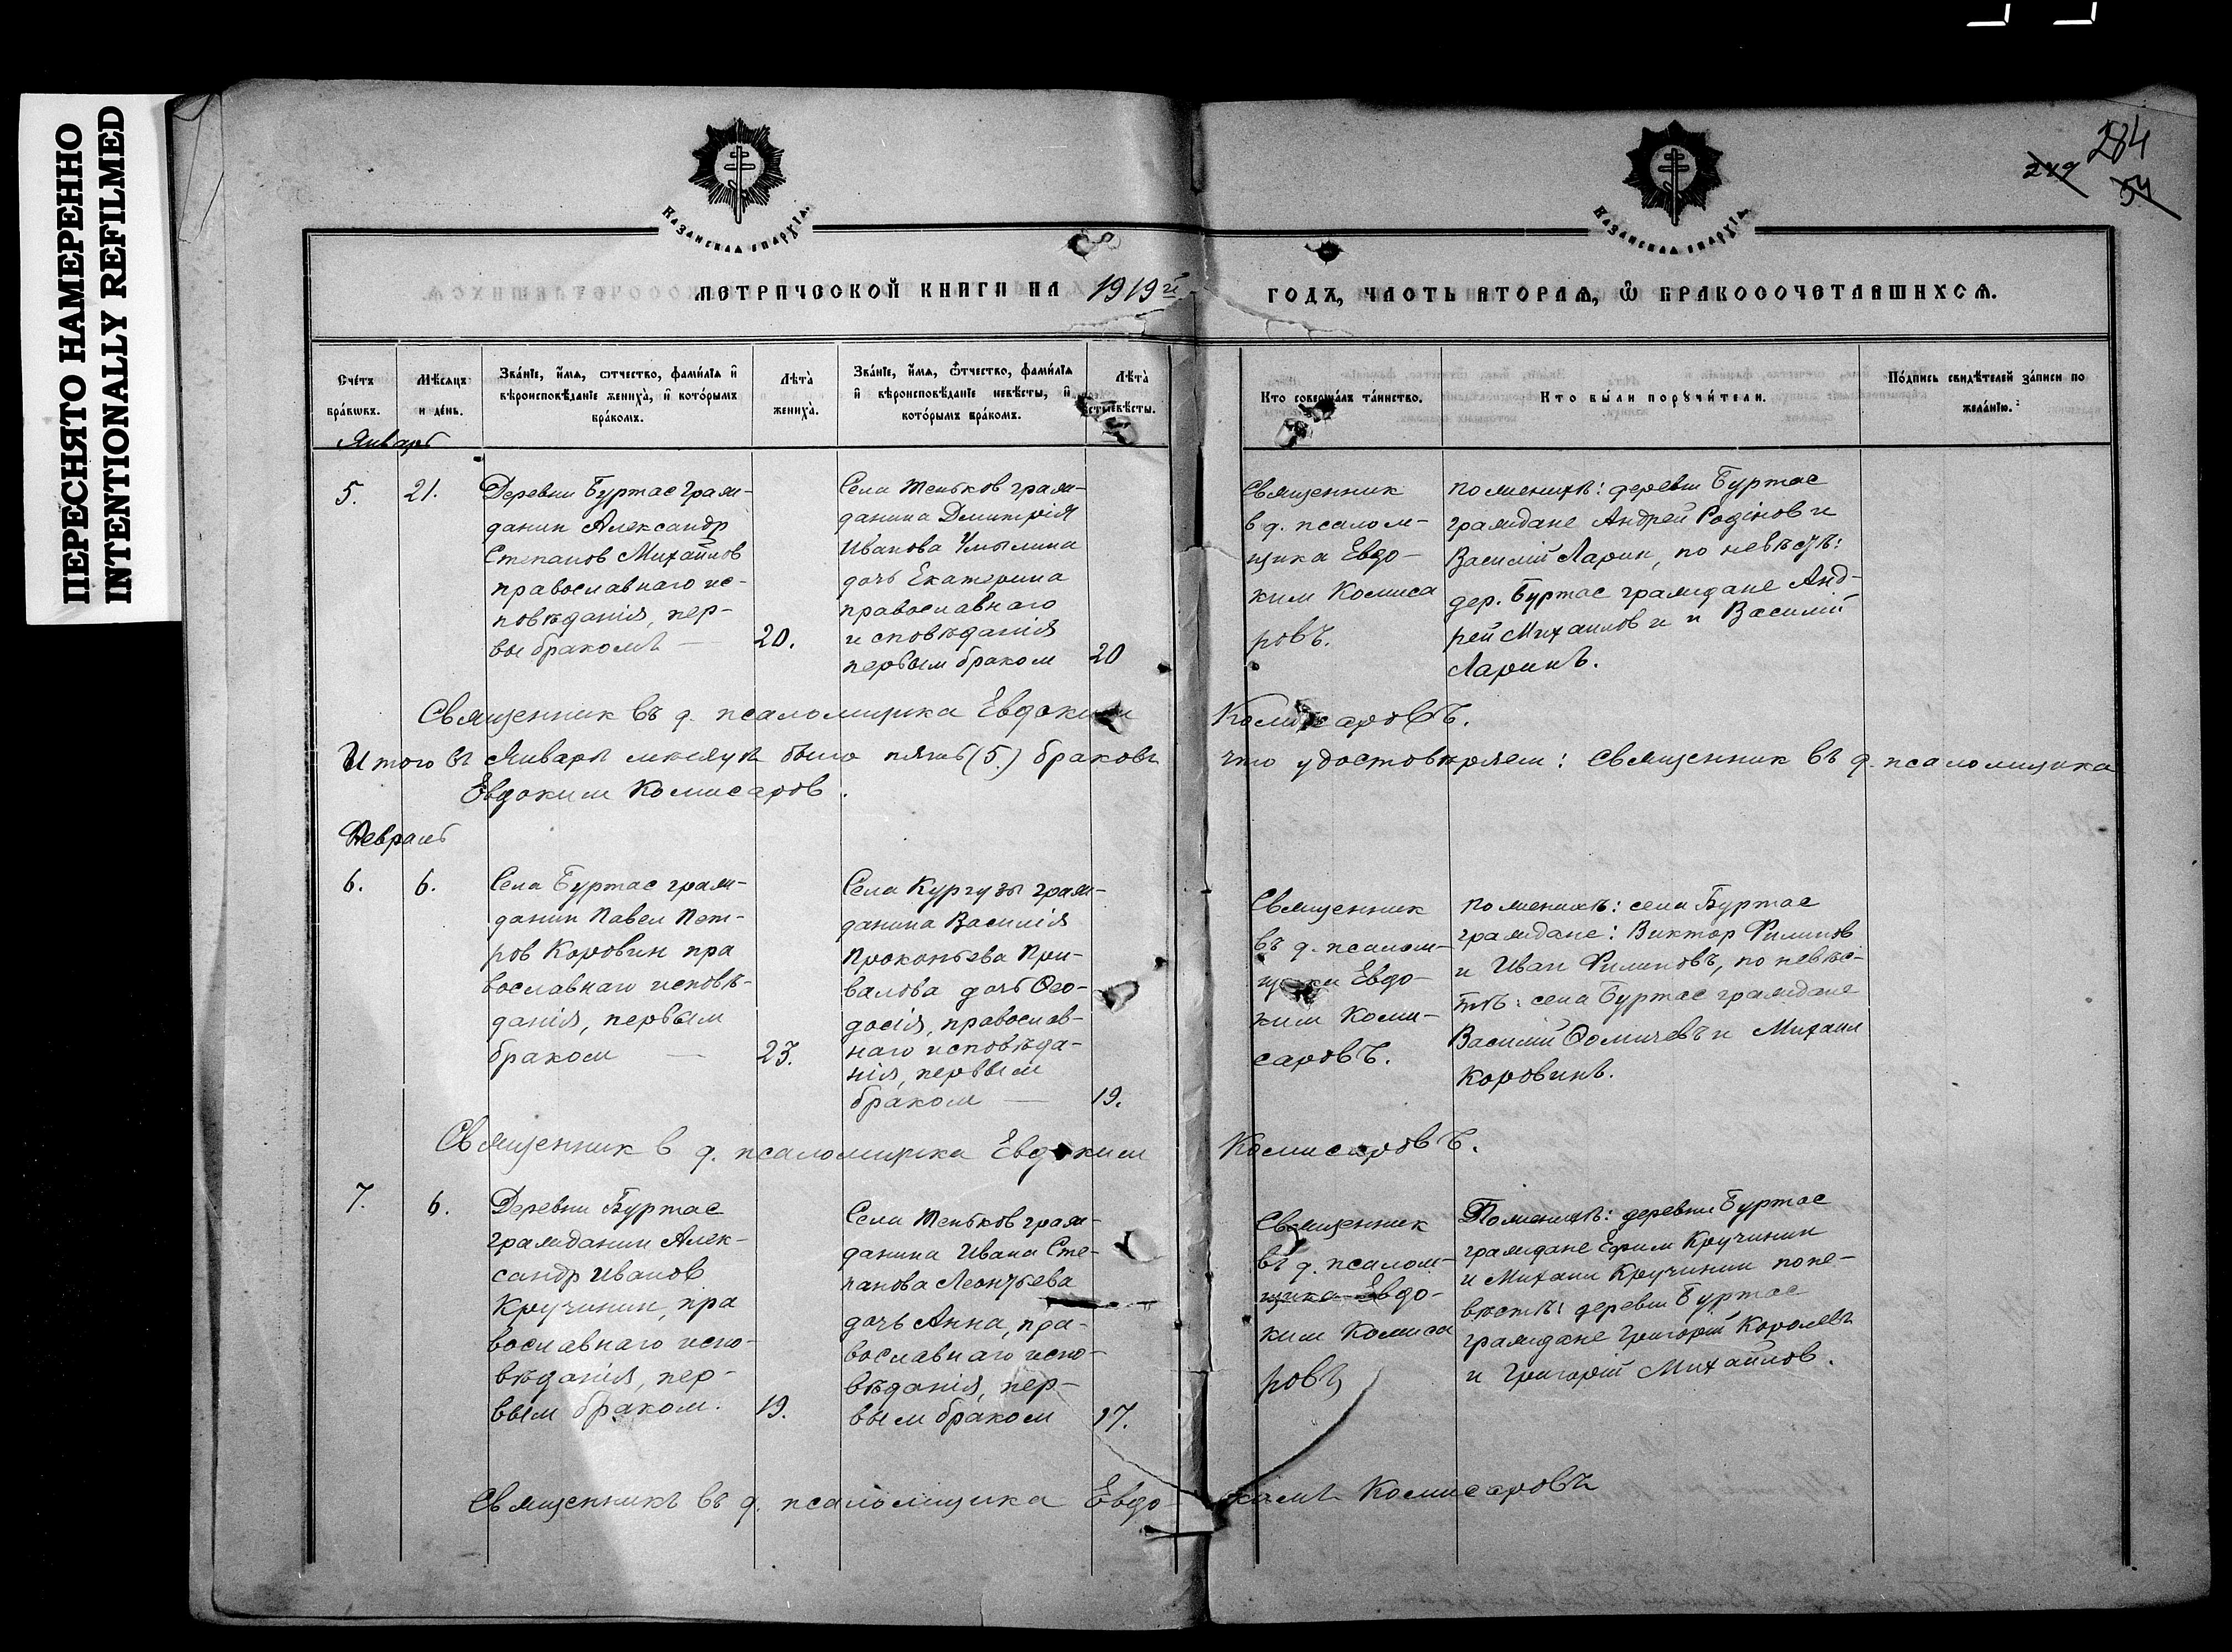 ПЕРЕСНЯТО НАМЕРЕННО
INTENTIONALLY REFILMED
284
249
54
Казанская епархїѧ.
Казанская епархїѧ.
МЕТРИЧЕСКОЙ КНИГИ НА 1919й
ГОДЪ, ЧАСТЬ ВТОРАѦ, Ѿ БРАКОСОЧЕТАВШИХСѦ.
Счетъ
браковъ.
Мѣсѧцъ
и день.
Званїе, имѧ, отчество, фамилїѧ и
вѣроисповѣданїе жениха, и которымъ
бракомъ.
Лѣта
жениха.
Званїе, имѧ, ѿчество, фамилїѧ
и вѣроисповѣданїе невѣсты, и
которымъ бракомъ.
Лѣта
невѣсты.
Кто совершалъ таинство.
Кто были поручители.
Подпись свидѣтелей записи по
желанїю.
Январь
5.
21.
Деревни Буртас граж-
данин Александр
Степанов Михайлов
православнаго ис-
повѣданія, пер-
вы бракомъ —
20.
Села Теньков граж-
данина Дмитрія
Иванова
дочь Екатерина
православнаго
исповѣданія
первым браком
20
Священник
в д. псалом-
щика Евдо-
ким Комиса
ровъ.
По женихѣ: деревни Буртас
граждане Андрей Родіонов и
Василій Ларин, по невѣстѣ:
дер. Буртас граждане Анд-
рей Михаилов и и Василій
Ларинъ.
Священник въ д. псаломщика Евдоким Комисаровъ.
Итого въ Январѣ месяцѣ было пять (5.) браковъ что удостовѣряем: Священник въ д. псаломщика
Евдоким Комисаров.
Февраль
6.
6.
Села Буртас граж-
данин Павел Пет-
ров Коровин пра
вославнаго исповѣ-
данія, первым
браком —
23.
Села Кургузы граж-
данина Василія
Прокопьева При-
валова дочь Ѳео-
досія, православ-
наго исповѣда-
нія, первым
браком —
19.
Священник
въ д. псалом-
щика Евдо-
ким Коми-
саровъ.
По женихѣ: села Буртас
граждане: Виктор Филипов
и Иван Филиповъ, по невѣс-
тѣ: села Буртас граждане
Василий Ѳомичевъ и Михаил
Коровинъ.
Священник в д. псаломщика Евдоким Комисаровъ.
7.
6.
Деревни Буртас
гражданин Алек-
сандр Иванов
Кручинин, пра
вославнаго испо-
вѣданія, пер-
вым браком.
19.
Села Теньков граж-
данина Ивана Сте-
панова Леонтьева
дочь Анна, пра-
вославнаго испо-
вѣданія, пер-
вым браком
17.
Священник
въ д. псалом-
щика Евдо-
ким Комиса
ровъ
По женихѣ: деревни Буртас
граждане Ефим Кручинин
и Михаил Кручинин по не-
вѣстѣ: деревни Буртас
граждане Григорій Королевъ
и Григорій Михайлов.
Священникъ въ д. псаломщика Евдокимъ Комисаровъ